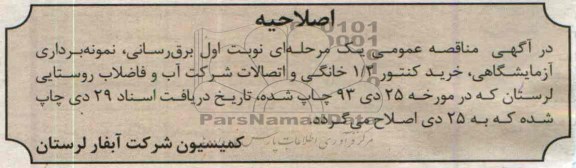 اصلاحیه
در آگهی مناقصه عمومی یک مرحله‌ای نوبت اول برق‌رسانی، نمونه‌برداری
آزمایشگاهی، خرید کنتور ۱/۲ خانگی و اتصالات شرکت آب و فاضلاب روستایی
لرستان که در مورخه ۲۵ دی ۹۳ چاپ شده، تاریخ دریافت اسناد ۲۹ دی چاپ
شده که به ۲۵ دی اصلاح می‌گردد.
ParsNamadData
کمیسیون شرکت آبفار لرستان